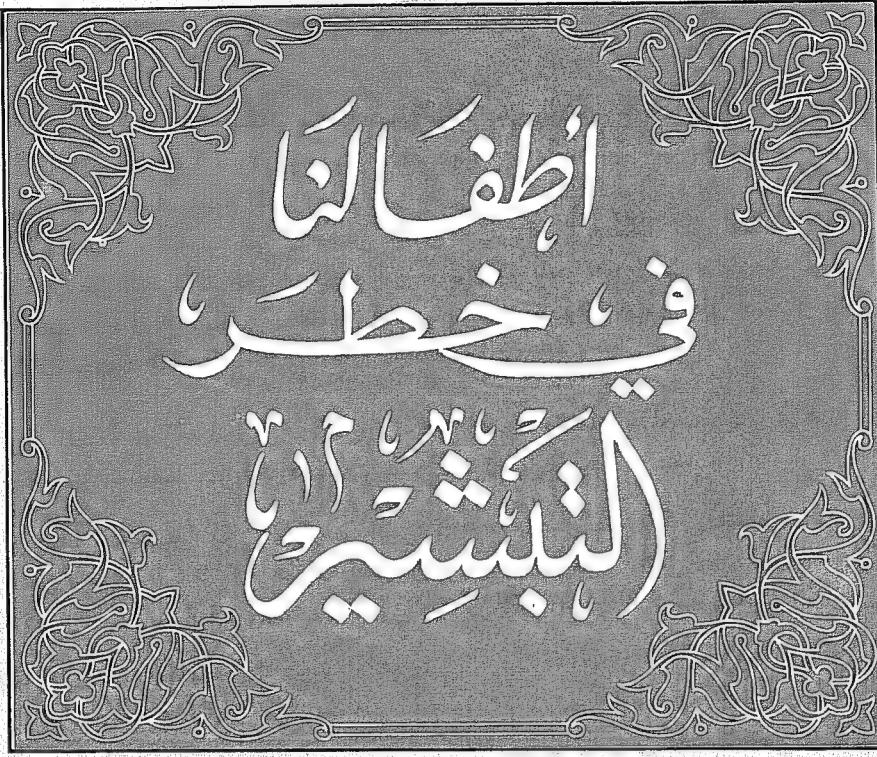 أطفَالنَا
في خطَر
التبَشِير